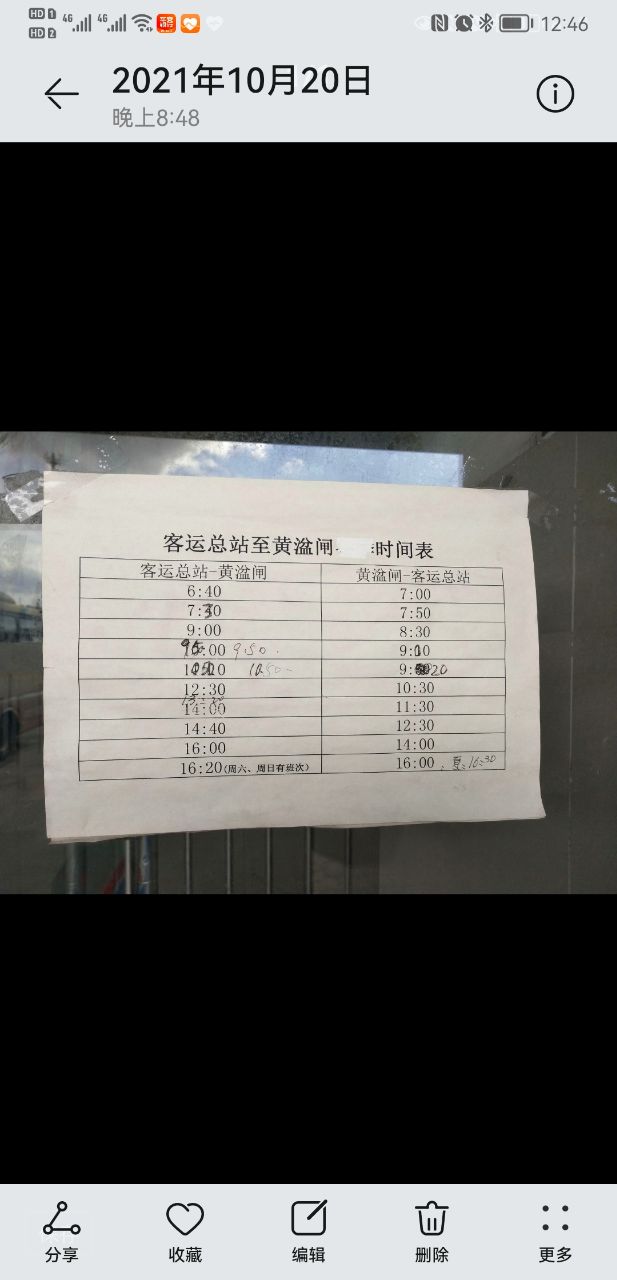 12:46
2021年10月20日
晚上8:48
客运总站至黄湓闸 时间表
客运总站-黄湓闸 黄湓闸-客运总站
6:40 7:00
7:50
9:00 8:30
9:50
10:50 20
12:30 10:30
14:00 11:30
14:40 12:30
16:00 14:00
16:20(周六、周日有班次) 16:00 夏:16:30
分享 收藏 编辑 删除 更多